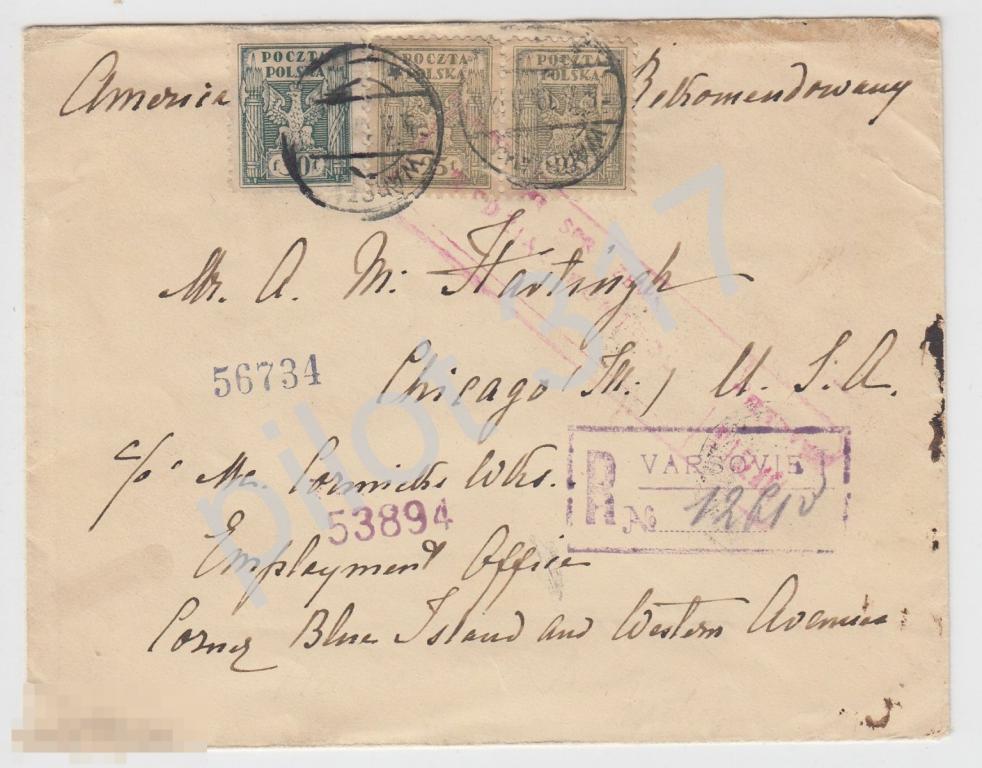 POCZTA POLSKA POCZTA POLSKA POCZTA POLSKA
America Rekomendowany
25f
WARSZ
Mr. A. M. Hartingh
56734
Chicago (Ill.) U. S. A.
c/o Mc. Cormicks Wks.
R VARSOVIE
№
53894
Employment Office
Corner Blue Island and Western Avenues
pilot 317